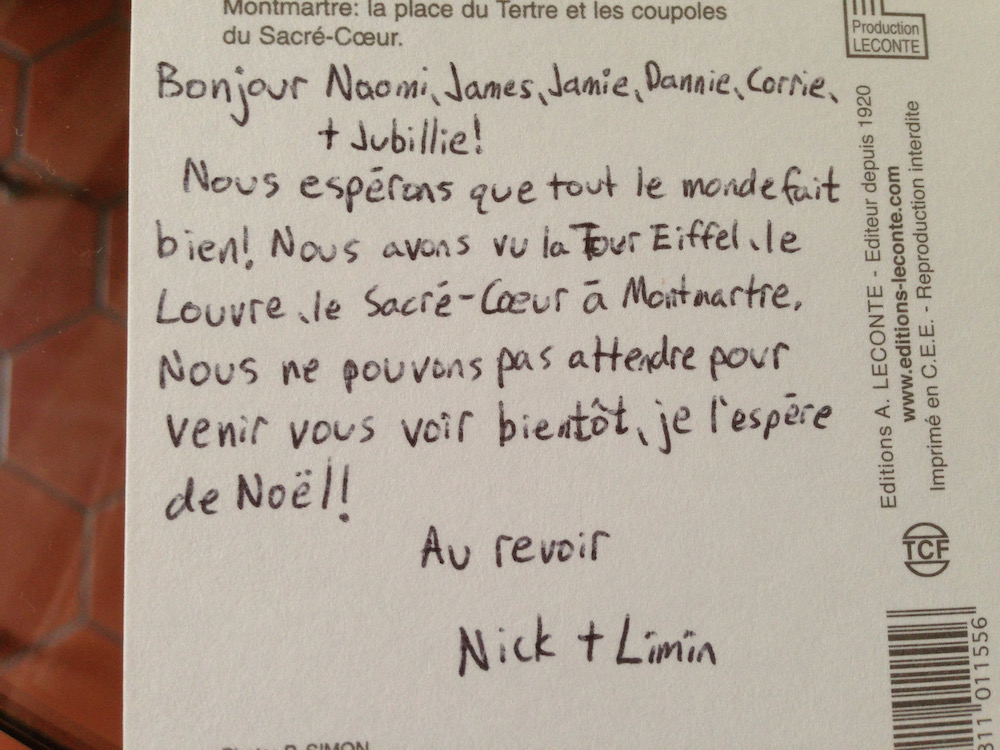 Montmartre: la place du Tertre et les coupoles
du Sacré-Cœur.
Production
LECONTE
Bonjour Naomi, James, Jamie, Dannie, Corrie,
+ Jubillie!
Nous espérons que tout le monde fait
bien! Nous avons vu la Tour Eiffel, le
Louvre, le Sacré-Cœur à Montmartre.
Nous ne pouvons pas attendre pour
venir vous voir bientôt, je l'espère
de Noël!
Au revoir
Nick + Limin
Editions A. LECONTE - Editeur depuis 1920
www.editions-leconte.com
Imprimé en C.E.E. - Reproduction interdite
TCF
811 011556
SIMON